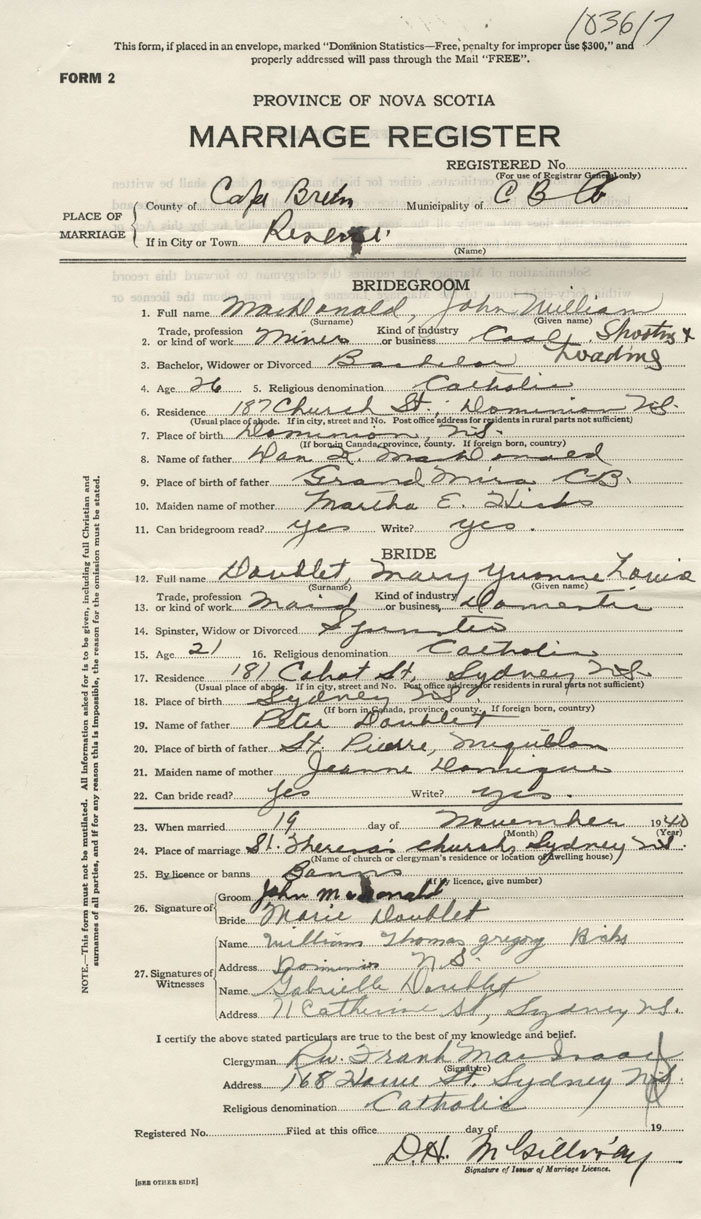 1036/7
This form, if placed in an envelope, marked "Dominion Statistics—Free, penalty for improper use $300," and
properly addressed will pass through the Mail "FREE".
FORM 2
PROVINCE OF NOVA SCOTIA
MARRIAGE REGISTER
REGISTERED No.
(For use of Registrar General only)
PLACE OF MARRIAGE
County of Cape Breton Municipality of C B Co
If in City or Town Reserve.
(Name)
BRIDEGROOM
1. Full name MacDonald, John William
(Surname) (Given name)
2. Trade, profession or kind of work Miner Kind of industry or business Coal, Shooting & Loading
3. Bachelor, Widower or Divorced Bachelor
4. Age 26 5. Religious denomination Catholic
6. Residence 187 Church St., Dominion N.S.
(Usual place of abode. If in city, street and No. Post office address for residents in rural parts not sufficient)
7. Place of birth Dominion, N.S.
(If born in Canada, province, county. If foreign born, country)
8. Name of father Dan R. MacDonald
9. Place of birth of father Grand Mira C.B.
10. Maiden name of mother Martha E. Hicks
11. Can bridegroom read? yes Write? yes.
BRIDE
12. Full name Doublet, Mary Yvonne Louise
(Surname) (Given name)
13. Trade, profession or kind of work Maid Kind of industry or business, Domestic
14. Spinster, Widow or Divorced Spinster
15. Age 21 16. Religious denomination Catholic
17. Residence 181 Cabot St, Sydney N.S.
(Usual place of abode. If in city, street and No. Post office address for residents in rural parts not sufficient)
18. Place of birth Sydney N.S.
(If born in Canada, province, county. If foreign born, country)
19. Name of father Peter Doublet
20. Place of birth of father St. Pierre, Miquelon
21. Maiden name of mother Jeanne Domigue
22. Can bride read? yes Write? yes.
23. When married 19 day of November 1940
(Month) (Year)
24. Place of marriage St. Theresa's Church, Sydney N.S.
(Name of church or clergyman's residence or location of dwelling house)
25. By licence or banns Banns
(If by licence, give number)
26. Signature of
Groom John McDonald
Bride Marie Doublet
27. Signatures of Witnesses
Name William Thomas gregory Hicks
Address Dominion N S.
Name Gabrielle Doublet
Address 71 Catherine St, Sydney N.S.
I certify the above stated particulars are true to the best of my knowledge and belief.
Clergyman Rev. Frank MacIsaac
(Signature)
Address 168 Howe St. Sydney N.S.
Religious denomination Catholic
Registered No. Filed at this office day of 19
D.H. McGillivray
Signature of Issuer of Marriage Licence.
[SEE OTHER SIDE]
NOTE.—This form must not be mutilated. All information asked for is to be given, including full Christian and
surnames of all parties, and if for any reason this is impossible, the reason for the omission must be stated.